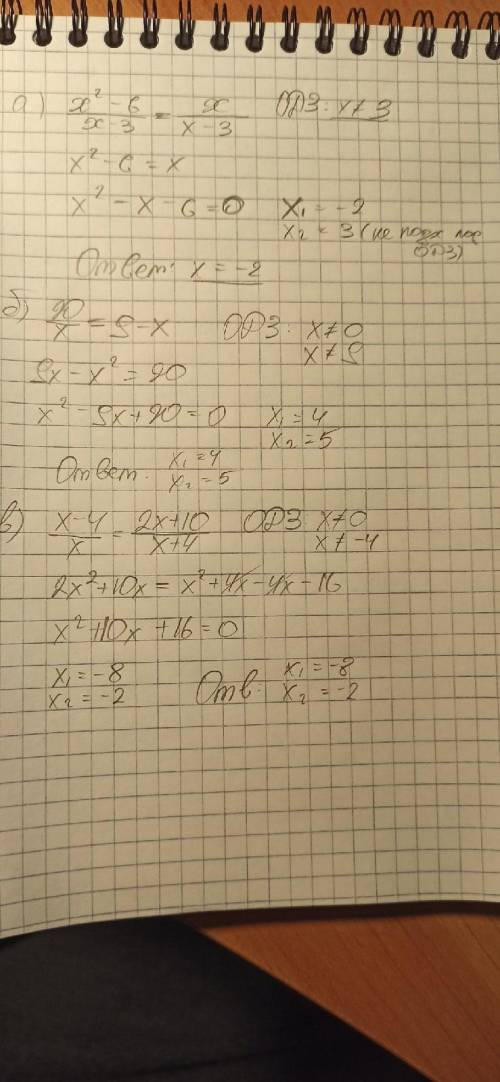 а) x²-6/x-3 = x/x-3 ОДЗ: x≠3
x²-6=x
x²-x-6=0 x₁=-2
x₂=3 (не подх под ОДЗ)
Ответ: x=-2
б) 20/x=9-x ОДЗ: x≠0
x≠9
9x-x²=20
x²-9x+20=0 x₁=4
x₂=5
Ответ: x₁=4
x₂=5
в) x-4/x = 2x+10/x+4 ОДЗ x≠0
x≠-4
2x²+10x=x²+4x-4x-16
x²+10x+16=0
x₁=-8
x₂=-2
Отв: x₁=-8
x₂=-2